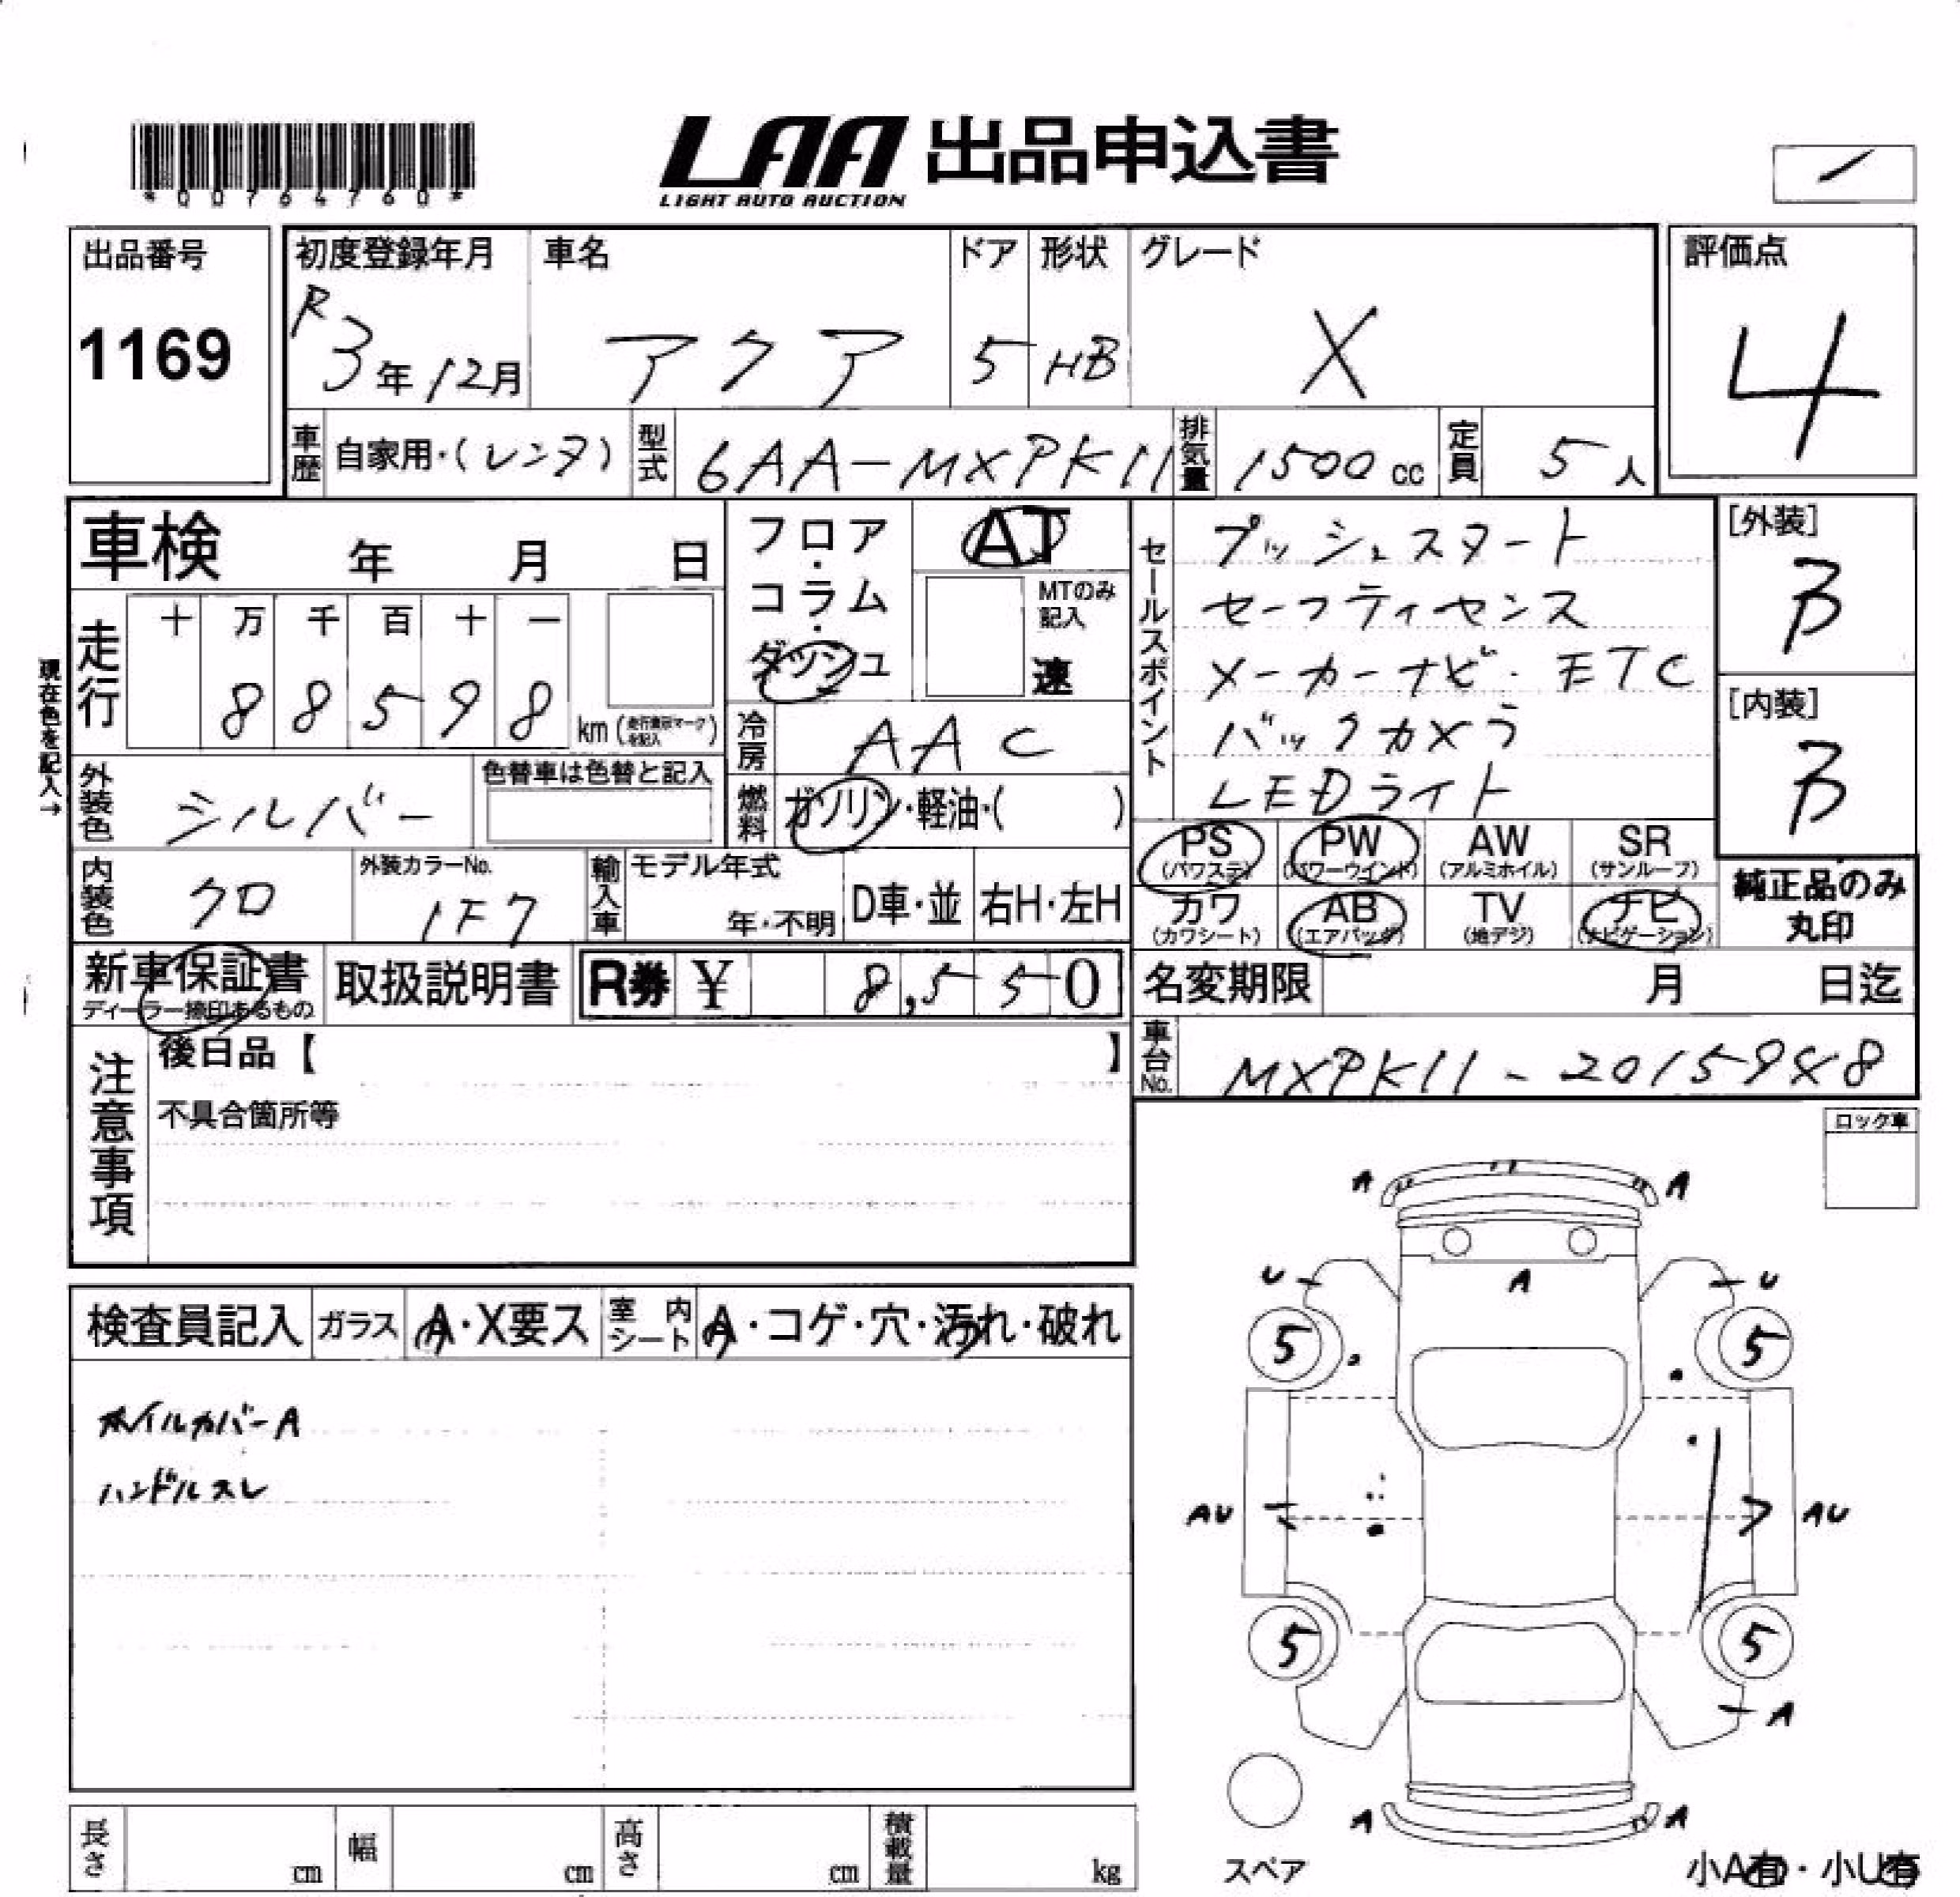 *00764760*
LAA 出品申込書
LIGHT AUTO AUCTION
出品番号
1169
初度登録年月
R3年12月
車名
アクア
ドア
5
形状
HB
グレード
X
評価点
4
車歴
自家用・(レンタ)
型式
6AA-MXPK11
排気量
1500cc
定員
5人
車検 年 月 日
走行
十 万 千 百 十 一
8 8 5 9 8
km(走行表示マークを記入)
現在色を記入→
フロア・コラム・ダッシュ
AT
MTのみ記入
速
冷房
AAC
燃料
ガソリン・軽油・( )
セールスポイント
プッシュスタート
セーフティセンス
メーカーナビ・ETC
バックカメラ
LEDライト
[外装]
B
[内装]
B
外装色
シルバー
色替車は色替と記入
内装色
クロ
外装カラーNo.
1F7
輸入車
モデル年式
年・不明
D車・並
右H・左H
PS
(パワステ)
PW
(パワーウインド)
AW
(アルミホイル)
SR
(サンルーフ)
カワ
(カワシート)
AB
(エアバッグ)
TV
(地デジ)
ナビ
(ナビゲーション)
純正品のみ
丸印
新車保証書
ディーラー捺印あるもの
取扱説明書
R券 ¥ 8,550
名変期限 月 日迄
車台No.
MXPK11-2015948
注意事項
後日品【 】
不具合箇所等
ロック車
検査員記入
ガラス
A・X要ス
室内シート
A・コゲ・穴・汚れ・破れ
ホイルカバーA
ハンドルスレ
A A
U A U
5 5
AU AU
5 5
A
A A
スペア
小A有・小U有
長さ cm
幅 cm
高さ cm
積載量 kg